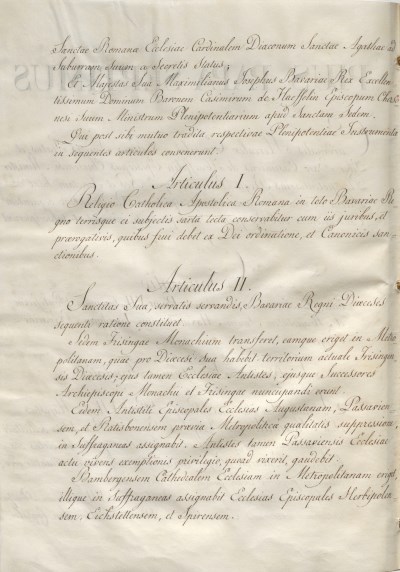 Sanctae Romanae Ecclesiae Cardinalem Diaconum Sanctae Agathae ad
Suburram, Suum a Secretis Status;
Et Majestas Sua Maximilianus Josephus Bavariae Rex Excellen-
tissimum Dominum Baronem Casimirum de Haeffelin Episcopum Cherso-
nesi Suum Ministrum Plenipotentiarium apud Sanctam Sedem.
Qui post sibi mutuo tradita respectivae Plenipotentiae Instrumenta
in sequentes articulos convenerunt:
Articulus I.
Religio Catholica Apostolica Romana in toto Bavariae Re-
gno terrisque ei subjectis sarta tecta conservabitur cum iis juribus, et
praerogativis, quibus frui debet ex Dei ordinatione, et Canonicis san-
ctionibus.
Articulus II.
Sanctitas Sua, servatis servandis, Bavariae Regni Dioeceses
sequenti ratione constituet.
Sedem Frisingae Monachium transferet, eamque eriget in Metro-
politanam, quae pro Dioecesi sua habebit territorium actuale Frisingen-
sis Dioecesis; ejus tamen Ecclesiae Antistes, ejusque Successores
Archiepiscopi Monachii et Frisingae nuncupandi erunt.
Eidem Antistiti Episcopales Ecclesias Augustanam, Passavien-
sem, et Ratisbonensem praevia Metropolitica qualitatis suppressione,
in Suffraganeas assignabit. Antistes tamen Passaviensis Ecclesiae
actu vivens exemptionis privilegio, quoad vixerit, gaudebit.
Bambergensem Cathedralem Ecclesiam in Metropolitanam eriget,
illique in Suffraganeas assignabit Ecclesias Episcopales Herbipolen-
sem, Eichstettensem, et Spirensem.